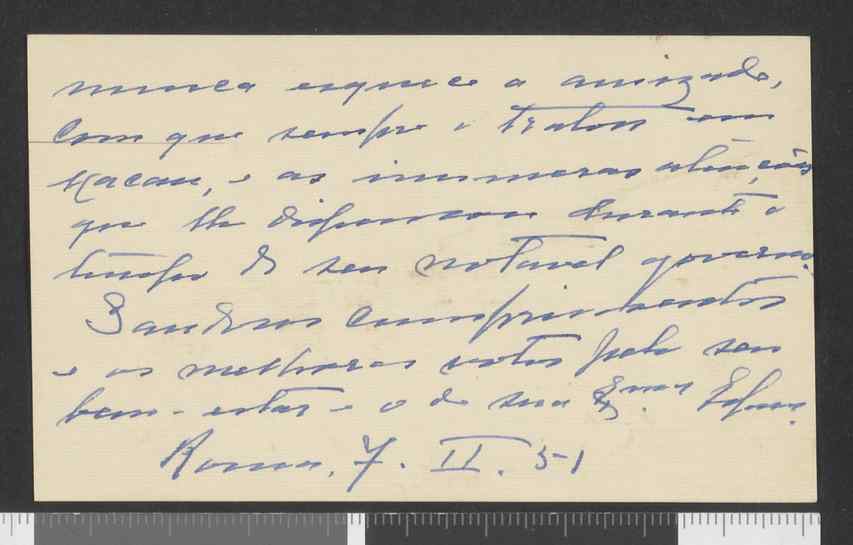 nunca esquece a amizade,
com que sempre o tratou em
Macau, e as inumeras atenções
que lhe dispensou durante o
tempo do seu notavel governo.
Saudosos cumprimentos
e os melhores votos pelo seu
bem-estar e o de sua Exma Esposa.
Roma, 7. II. 51